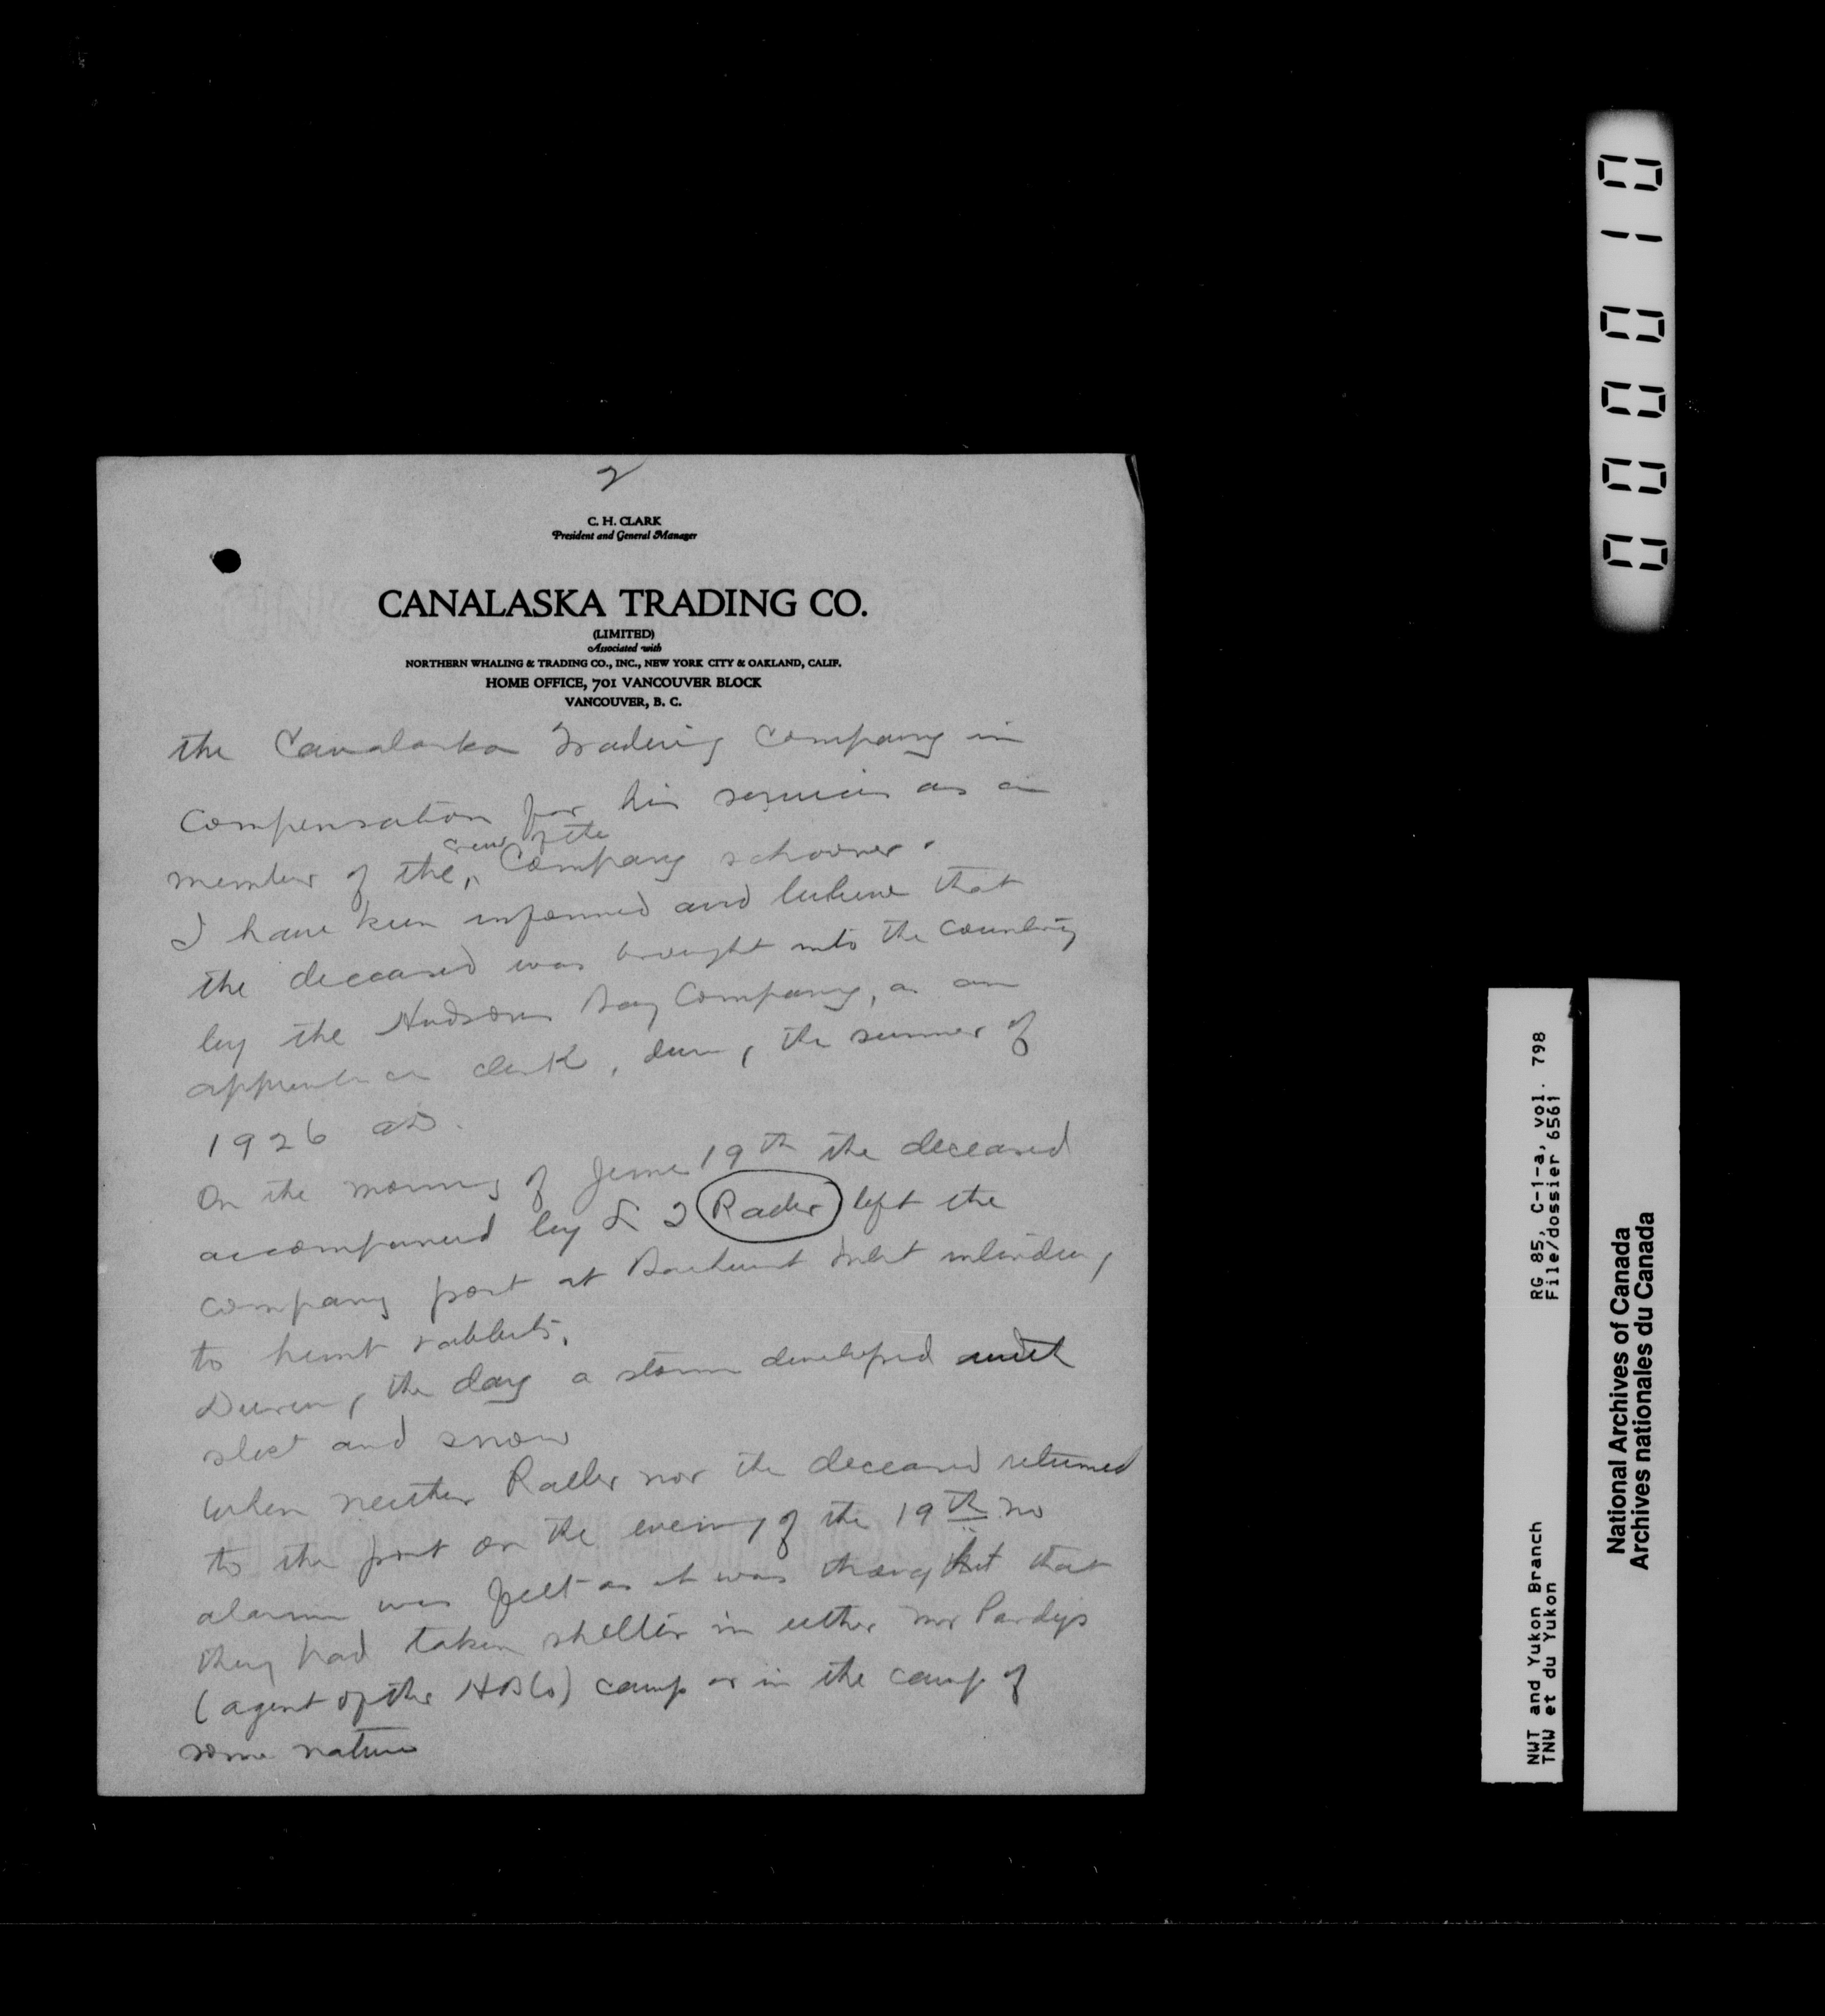 2
C. H. CLARK
President and General Manager
CANALASKA TRADING CO.
(LIMITED)
Associated with
NORTHERN WHALING & TRADING CO., INC., NEW YORK CITY & OAKLAND, CALIF.
HOME OFFICE, 701 VANCOUVER BLOCK
VANCOUVER, B. C.
the Canalaska Trading Company in
compensation for his services as a
crew of the
member of the, Company schooner.
I have been informed and believe that
the deceased was brought into the country
by the Hudsons Bay Company, as an
apprentice clerk, during the summer of
1926 AD.
On the morning of June 19th the deceased
accompanied by Rader left the
company post at Bathurst Inlet intending
to hunt rabbits.
During the day a storm developed with
sleet and snow
When neither Rader nor the deceased returned
to the post on the evening of the 19th no
alarm was felt as it was thought that
they had taken shelter in either Mr Pardys
(agent of the HBCo) camp or in the camp of
some natives
000010
RG 85, C-1-a, vol. 798
File/dossier 6561
NWT and Yukon Branch
TNW et du Yukon
National Archives of Canada
Archives nationales du Canada